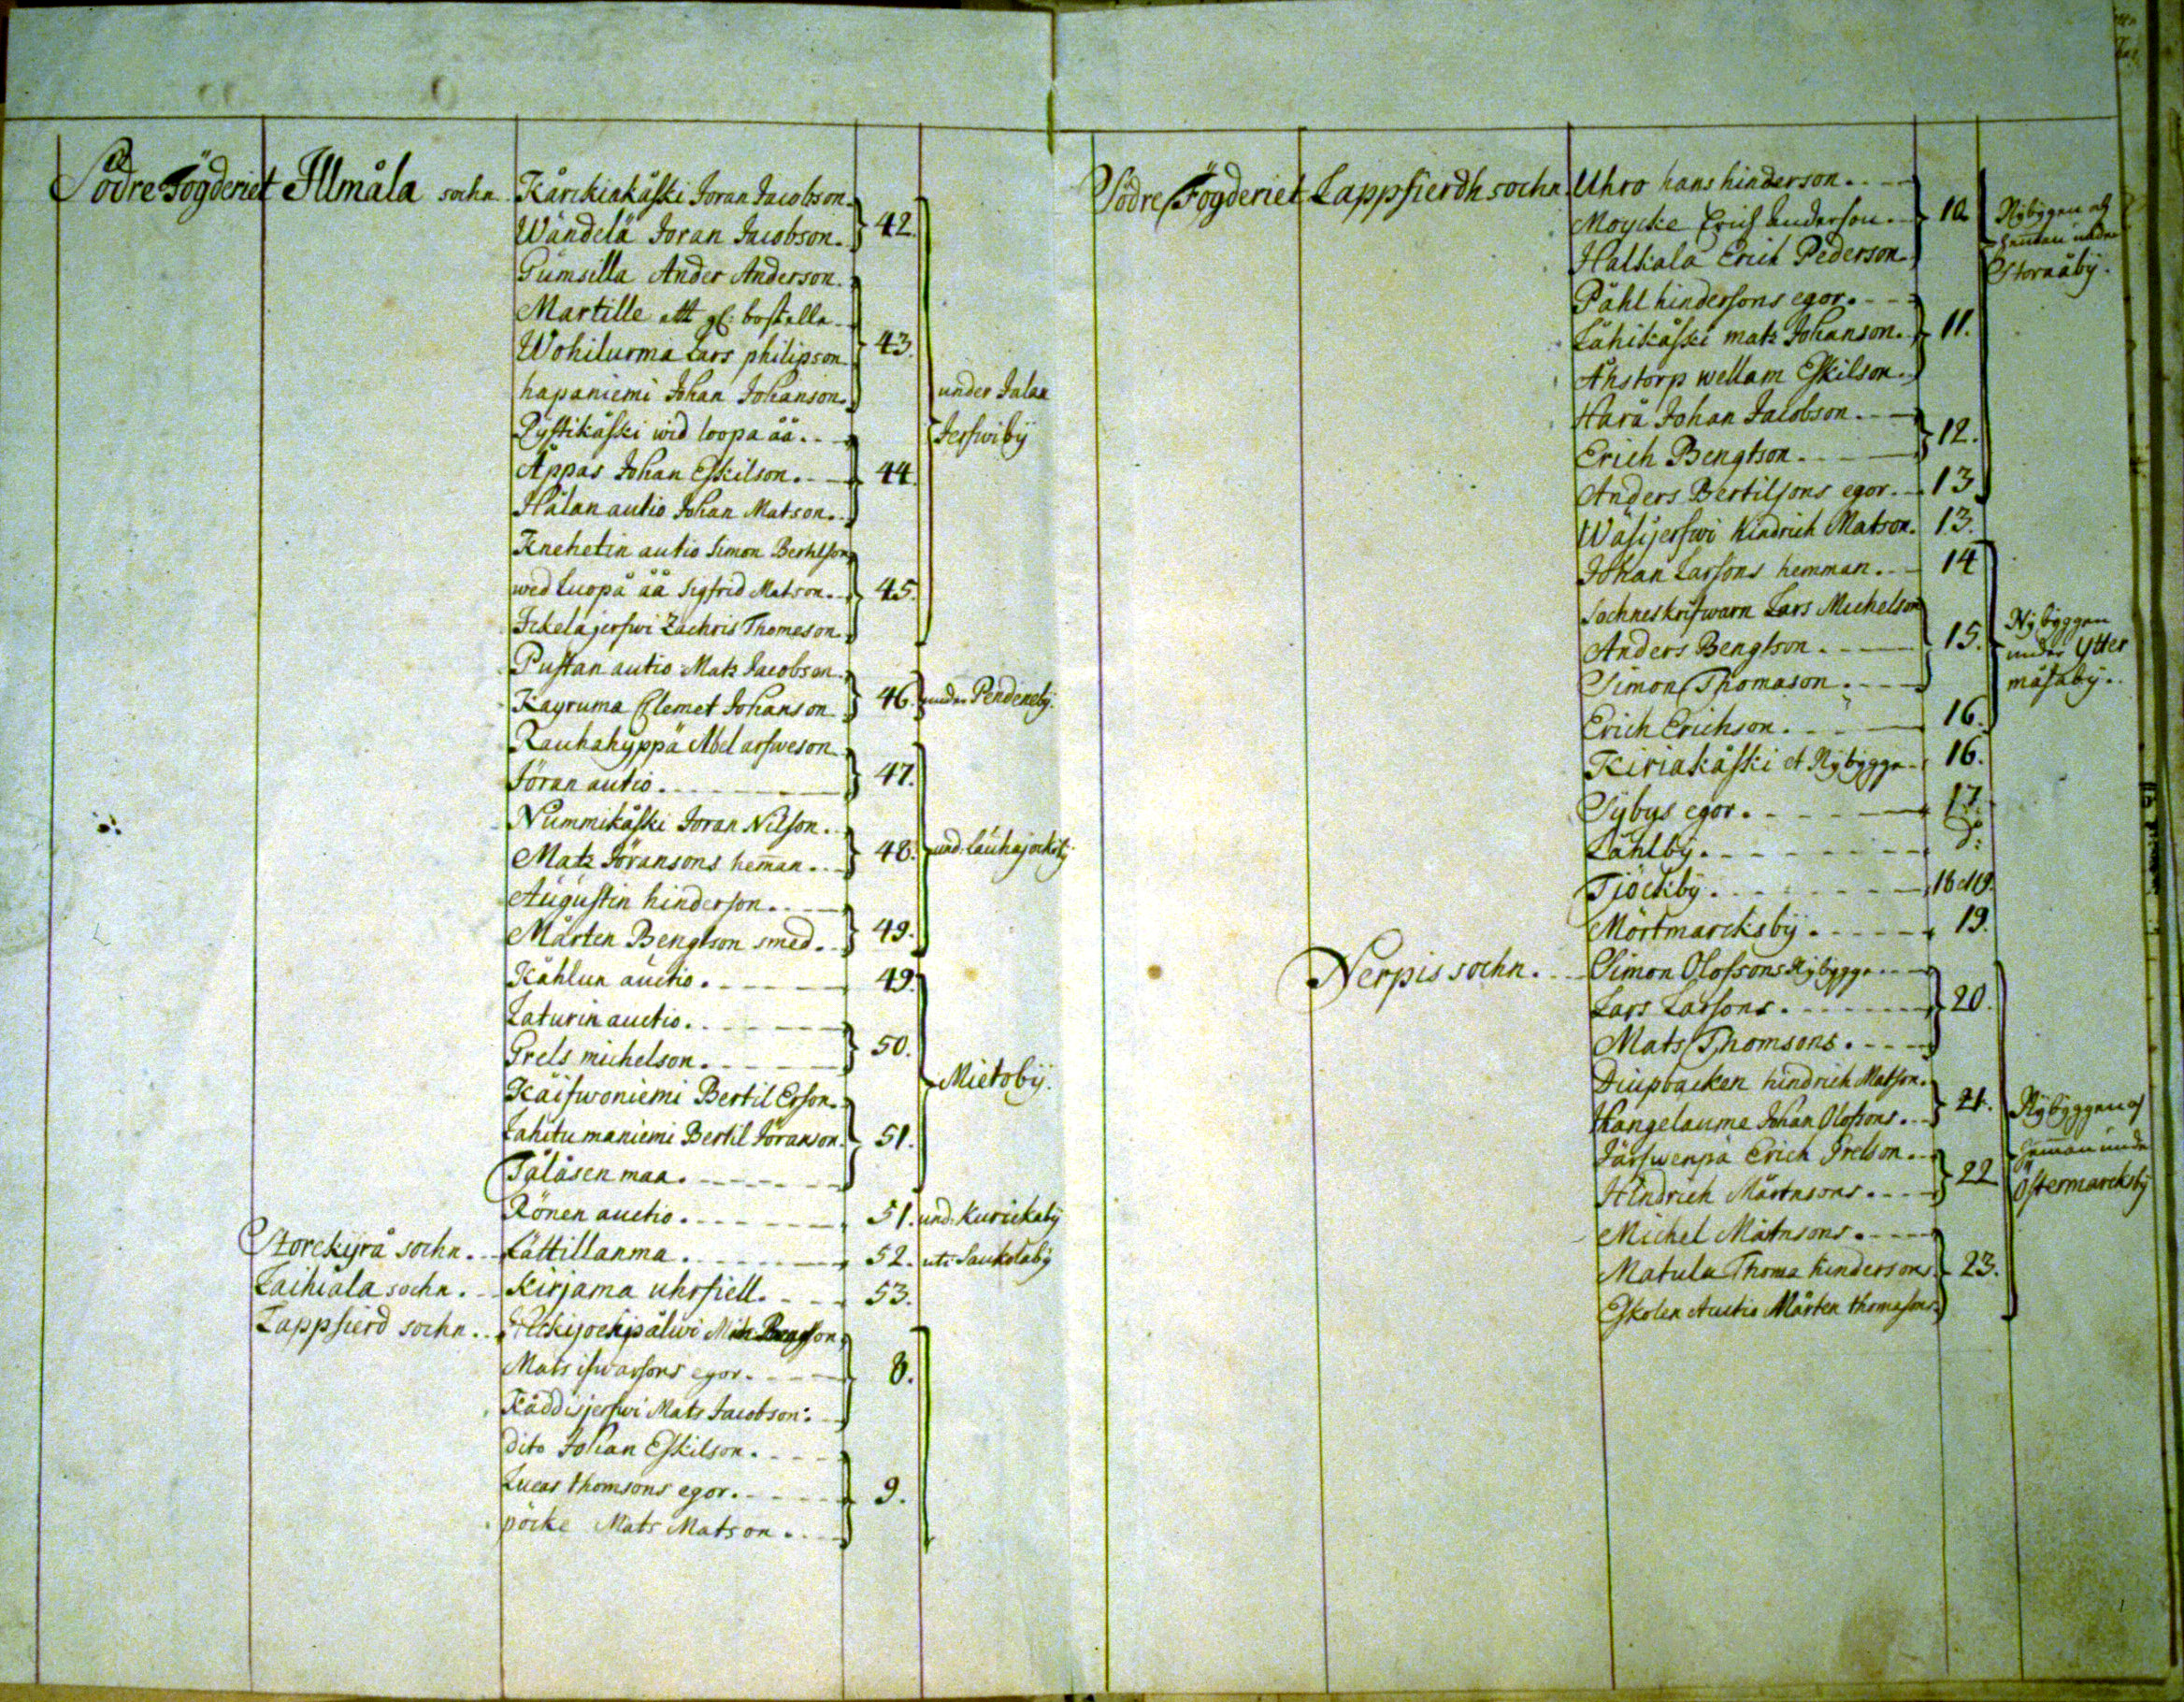 Södre Fögderiet Illmåla sochn. Kårckiakåski Joran Jacobson.
Wändelä Joran Jacobson. 42.
Gumsilla Ander Anderson.
Martille ett gl: bostelle
Wohilurma Lars philipson 43.
hapaniemi Johan Johanson
under Jalax
Pystikåski wid loopa åå.
Jerfwibÿ
Äppas Johan Eskilson. 44.
Hålan autio Johan Matson.
Knehetin autio Simon Bertilson
wed Luopå åå Sigfrid Matson. 45.
Ickelajerfwi Zachris Thomeson.
Pustan autio Matz Jacobson.
Kayruma Clemet Johanson 46. under Pendenebÿ.
Rauhahyppä Abel arfweson.
Föran autio. 47.
Nummikåski Joran Nilson.
Matz Jöransons hem̄an. 48. und: lauhajockibÿ
Augustin hinderson.
Mårten Bengtson smed. 49.
Kåhlun auctio. 49.
Laturin auctio.
Grels michelson. 50.
Mietobÿ.
Käifwoniemi Bertil Erson.
Lahitumaniemi Bertil Joranson. 51.
Tålåsen maa.
Rönen auctio. 51. und: Kurickabÿ
Storckyrå sochn. Lättillanma. 52. uti Saukolabÿ
Laihiala sochn. Kirjama uhrfiell. 53.
Lappfierd sochn. Heckijockipälwi Bengtson
Mats ifwarsons egor. 8.
Käddisjerfwi Mats Jacobson.
dito Johan Eskilson.
Lucas thomsons egor. 9.
pöcke Mats Matson.
Södre Fögderiet Lappfierdh sochn. Uhro hans hinderson.
Moycke Erich Anderson. 10. Nÿbÿgen och
Halkala Erich Pederson. heman under
Storaåbÿ.
Påhl hindersons egor.
Lähikåski matz Johanson. 11.
Åhstorp wellam Eskilson.
Harå Johan Jacobson.
Erich Bengtson. 12.
Anders Bertilsons egor. 13
Wäsijerfwi Hindrich Matson. 13.
Johan Larsons hemman. 14
Sochneskrifwarn Lars Michelson
Nÿbÿggen
Anders Bengtson. 15. under Ytter
Simon Thomason. måsabÿ.
Erich Erichson. 16.
Kiriakåski et Nÿbÿgge. 16.
Sÿbys egor. 17.
Låhlbÿ. Do:
Tjöckbÿ. 18 et 19.
Mörtmarcksbÿ. 19.
Nerpis sochn. Simon Olofsons Nÿbÿgge.
Lars Larsons. 20.
Mats Thomsons.
Diupbacken hindrich Matson.
Kangelauma Johan Olofsons. 21. Nÿbÿggen och
Järfwenpä Erich Grelson. hem̄an unde
Hindrich Mårtnsons. 22 Östermarcksbÿ
Michel Mårtnsons.
Matula Thoma hindersons. 23.
Eskolen Auctio Mårten thomasons